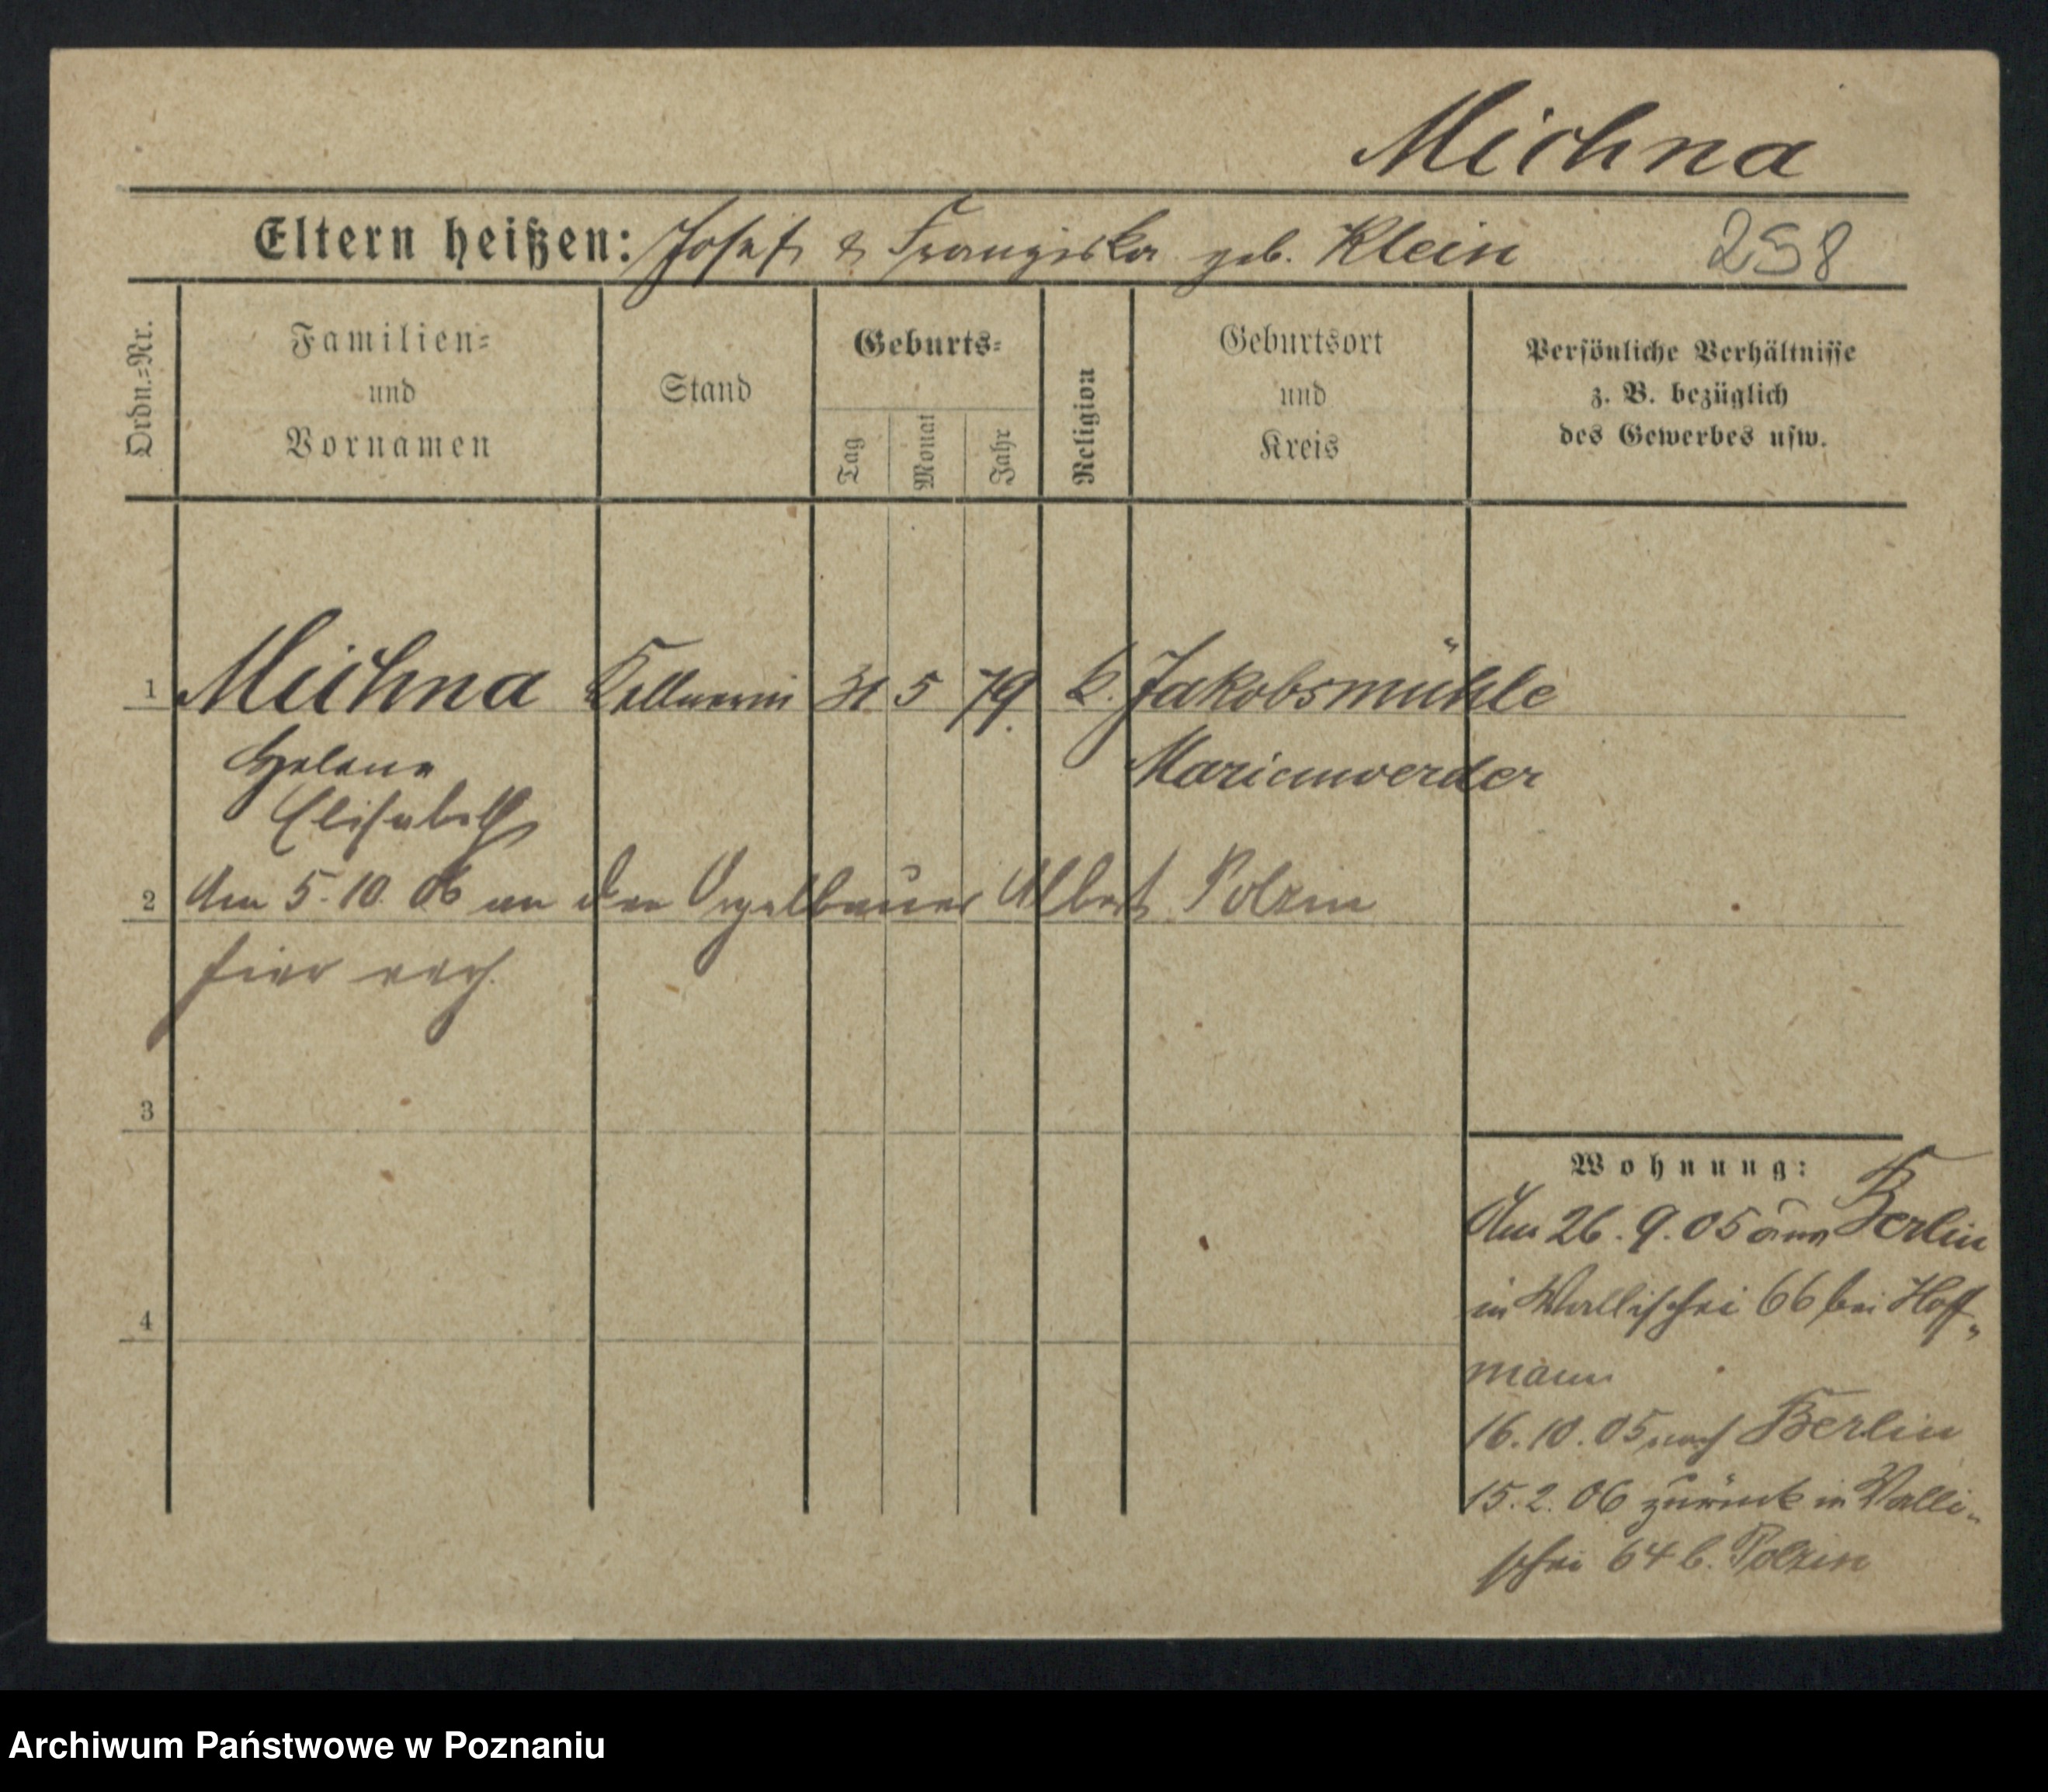 Michna
Eltern heißen: Josef & Franziska geb. Klein 258
Ordn.=Nr.
Familien=
und
Vornamen
Stand
Geburts=
Tag
Monat
Jahr
Religion
Geburtsort
und
Kreis
Persönliche Verhältnisse
z. B. bezüglich
des Gewerbes usw.
1 Michna Kellnerin 31 5 79. k. Jakobsmühle
Helene Marienwerder
Elisabeth
2 Am 5. 10. 06 an den Orgelbauer Albert Polzin
hier verh.
3
4
Wohnung:
Am 26. 9. 05 aus Berlin
in Wallischei 66 bei Hoff„
mann
16. 10. 05 nach Berlin
15. 2. 06 zurück in Walli„
schei 64 b. Polzin
Archiwum Państwowe w Poznaniu